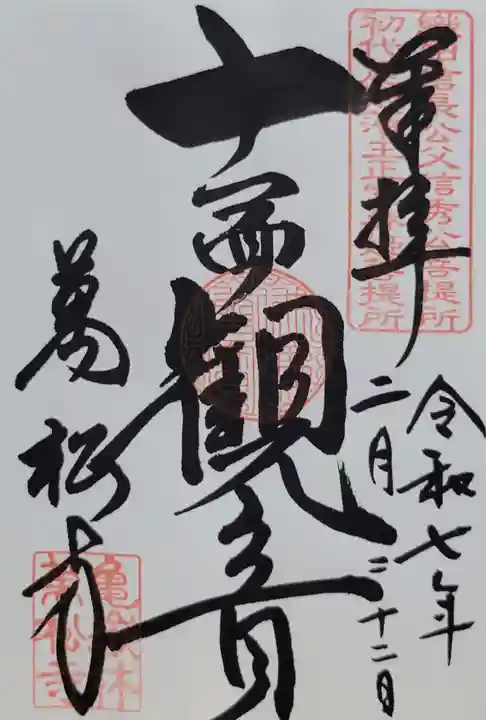 織田信長公父信秀公菩提所
初代
菩提所
奉拝
令和七年
二月二十二日
十一面観音
萬松寺
亀嶽林
萬松寺